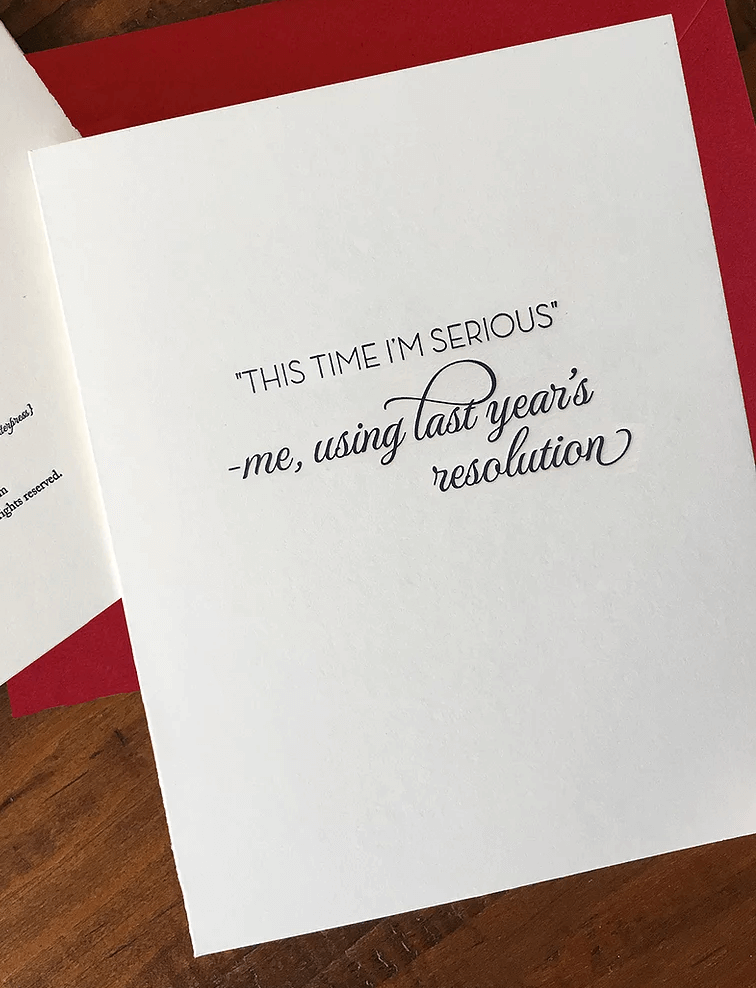 "THIS TIME I'M SERIOUS"
-me, using last year's
resolution
rights reserved.